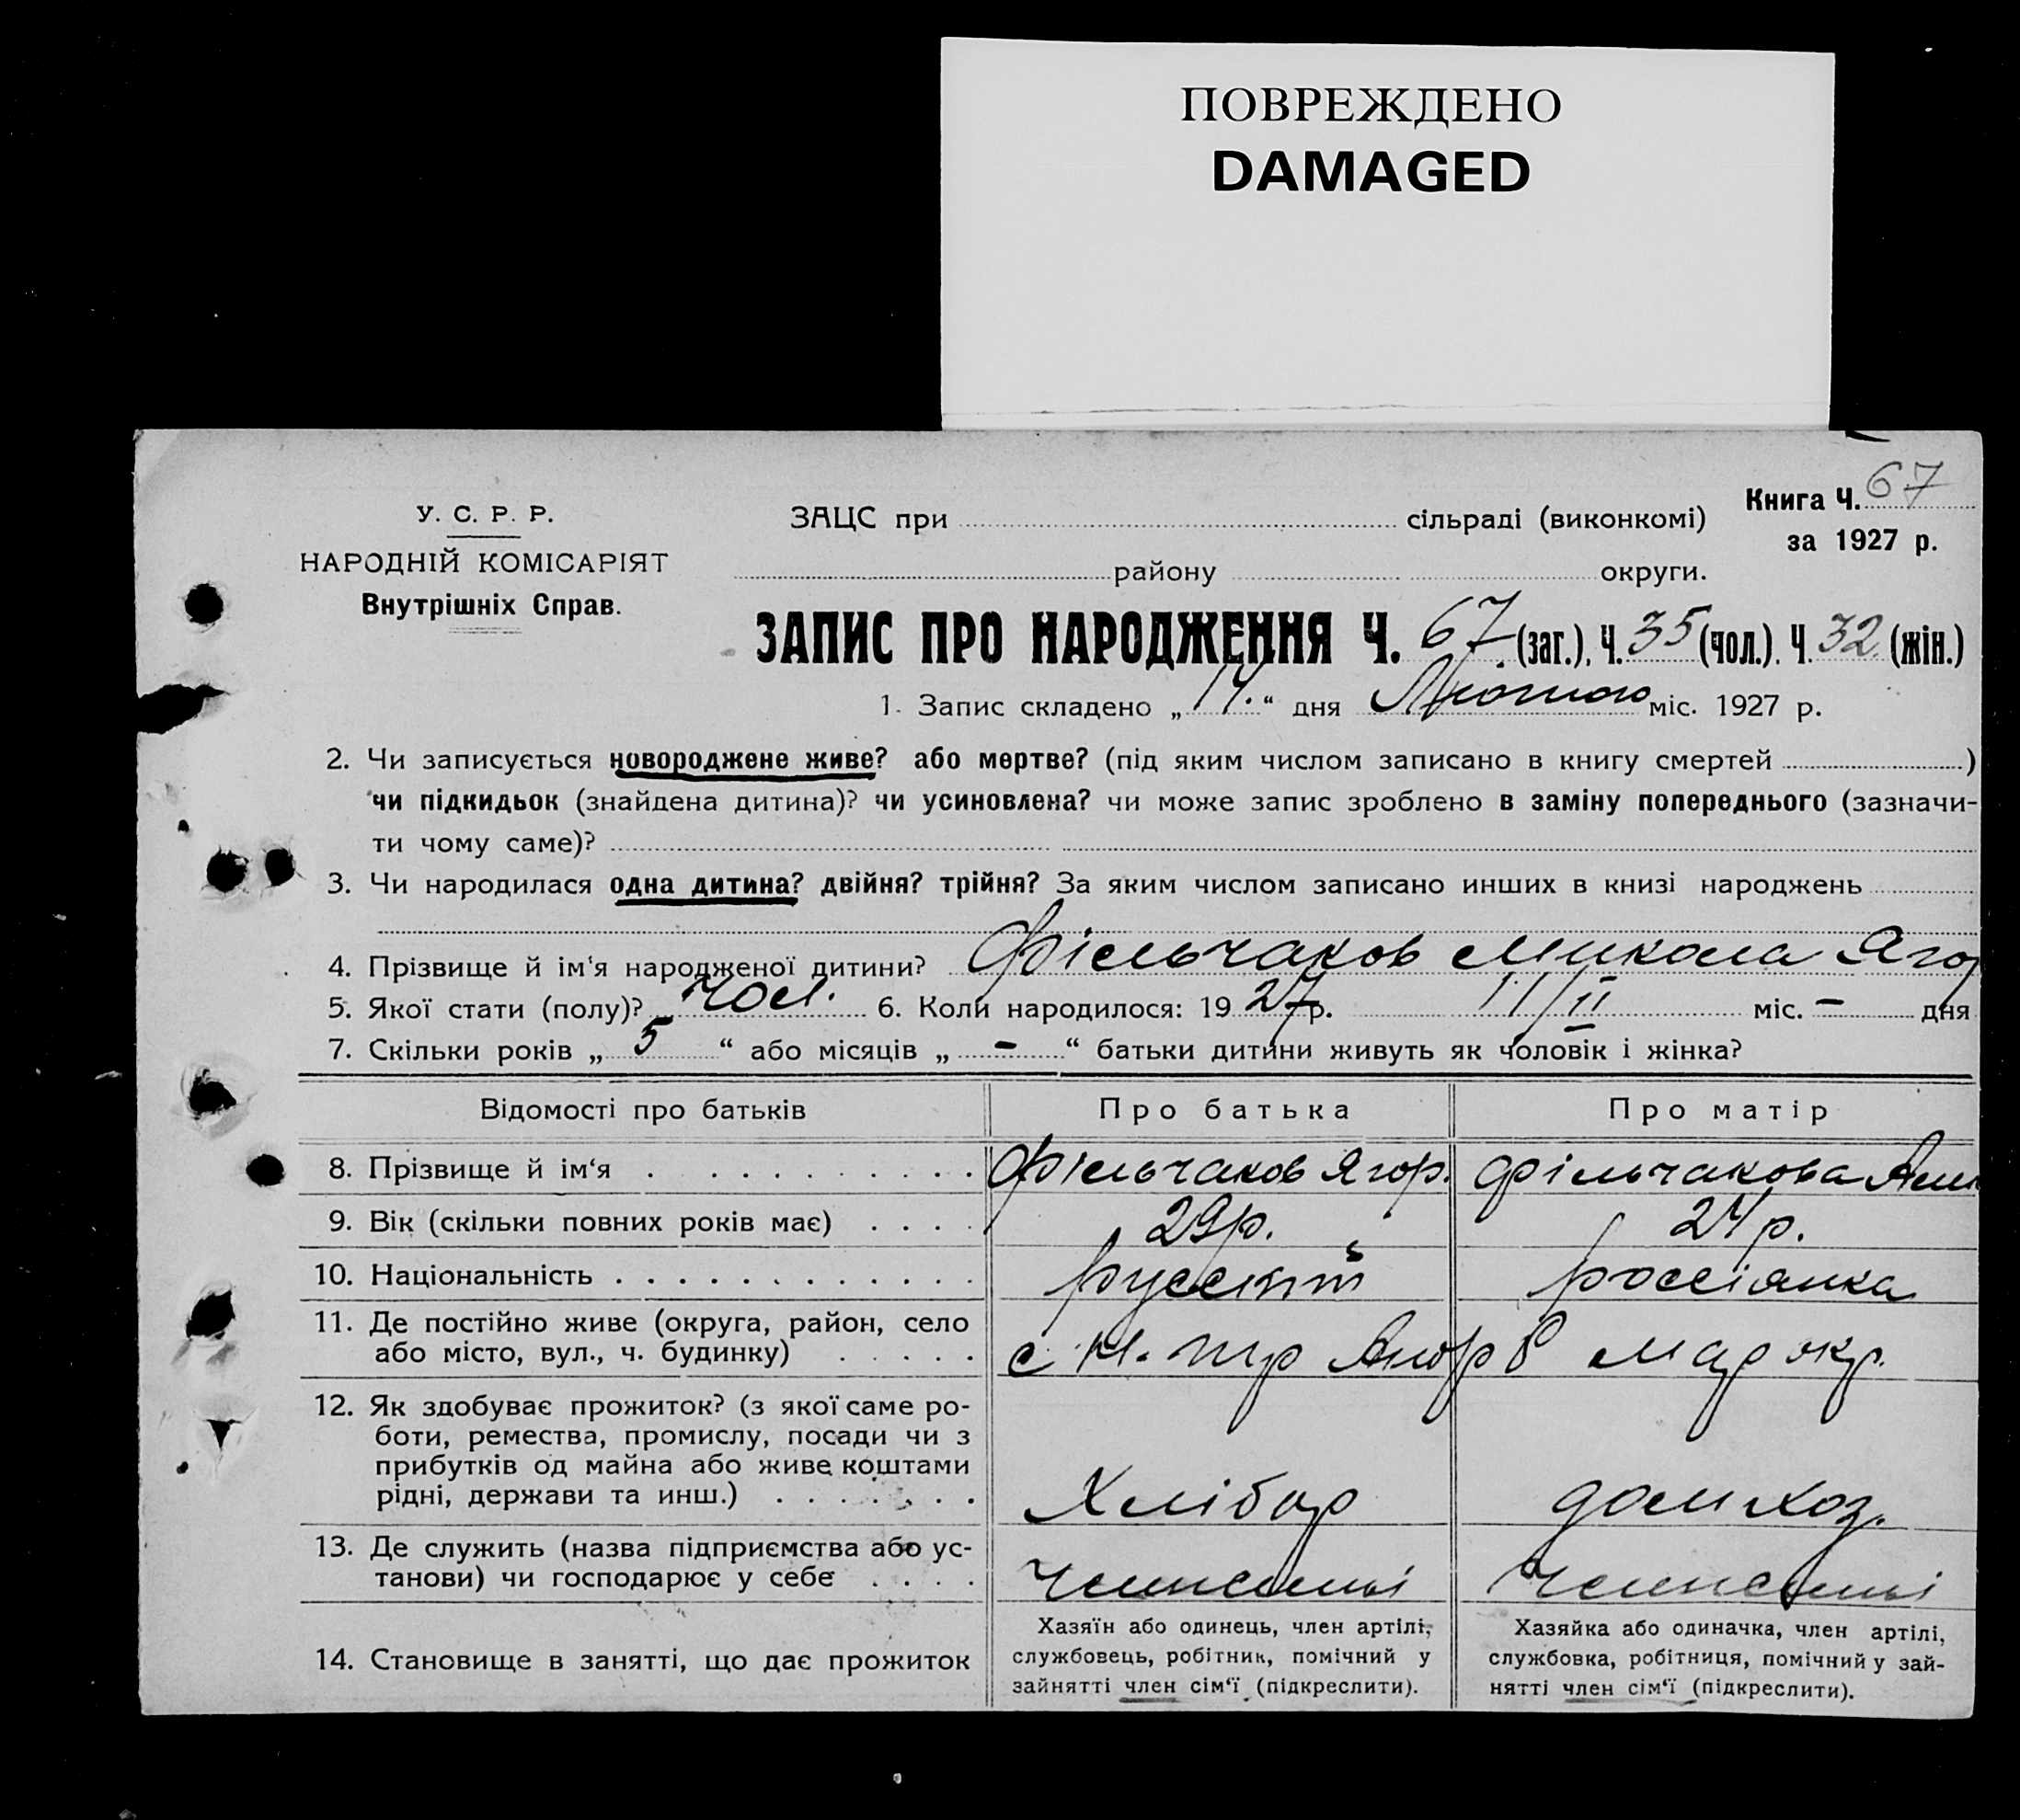 ПОВРЕЖДЕНО
DAMAGED
Книга Ч. 67
за 1927 р.
У. С. Р. Р.
НАРОДНІЙ КОМІСАРІЯТ
Внутрішніх Справ.
ЗАЦС при сільраді (виконкомі)
району округи.
ЗАПИС ПРО НАРОДЖЕННЯ Ч. 67 (заг.), Ч. 35 (чол.). Ч. 32 (жін.)
1. Запис складено „14.“ дня Лютого міс. 1927 р.
2. Чи записується новороджене живе? або мертве? (під яким числом записано в книгу смертей )
чи підкидьок (знайдена дитина)? чи усиновлена? чи може запис зроблено в заміну попереднього (зазначи-
ти чому саме)?
3. Чи народилася одна дитина? двійня? трійня? За яким числом записано инших в книзі народжень
4. Прізвище й ім'я народженої дитини? Фільчаков Микола Ягор
5. Якої стати (полу)? чол. 6. Коли народилося: 1927 р. 11/II міс. – дня
7. Скільки років „ 5 “ або місяців „ – “ батьки дитини живуть як чоловік і жінка?
Відомості про батьків Про батька Про матір
8. Прізвище й ім‘я Фільчаков Ягор. Фільчакова
9. Вік (скільки повних років має) 29 р. 24 р.
10. Національність русский россіянка
11. Де постійно живе (округа, район, село
або місто, вул., ч. будинку) с. Р мар окр.
12. Як здобуває прожиток? (з якої саме ро-
боти, ремества, промислу, посади чи з
прибутків од майна або живе коштами
рідні, держави та инш.) Хлібор дом хоз.
13. Де служить (назва підприємства або ус-
танови) чи господарює у себе
14. Становище в занятті, що дає прожиток
Хазяїн або одинець, член артілі,
службовець, робітник, помічний у
зайнятті член сім‘ї (підкреслити).
Хазяйка або одиначка, член артілі,
службовка, робітниця, помічний у зай-
нятті член сім‘ї (підкреслити).